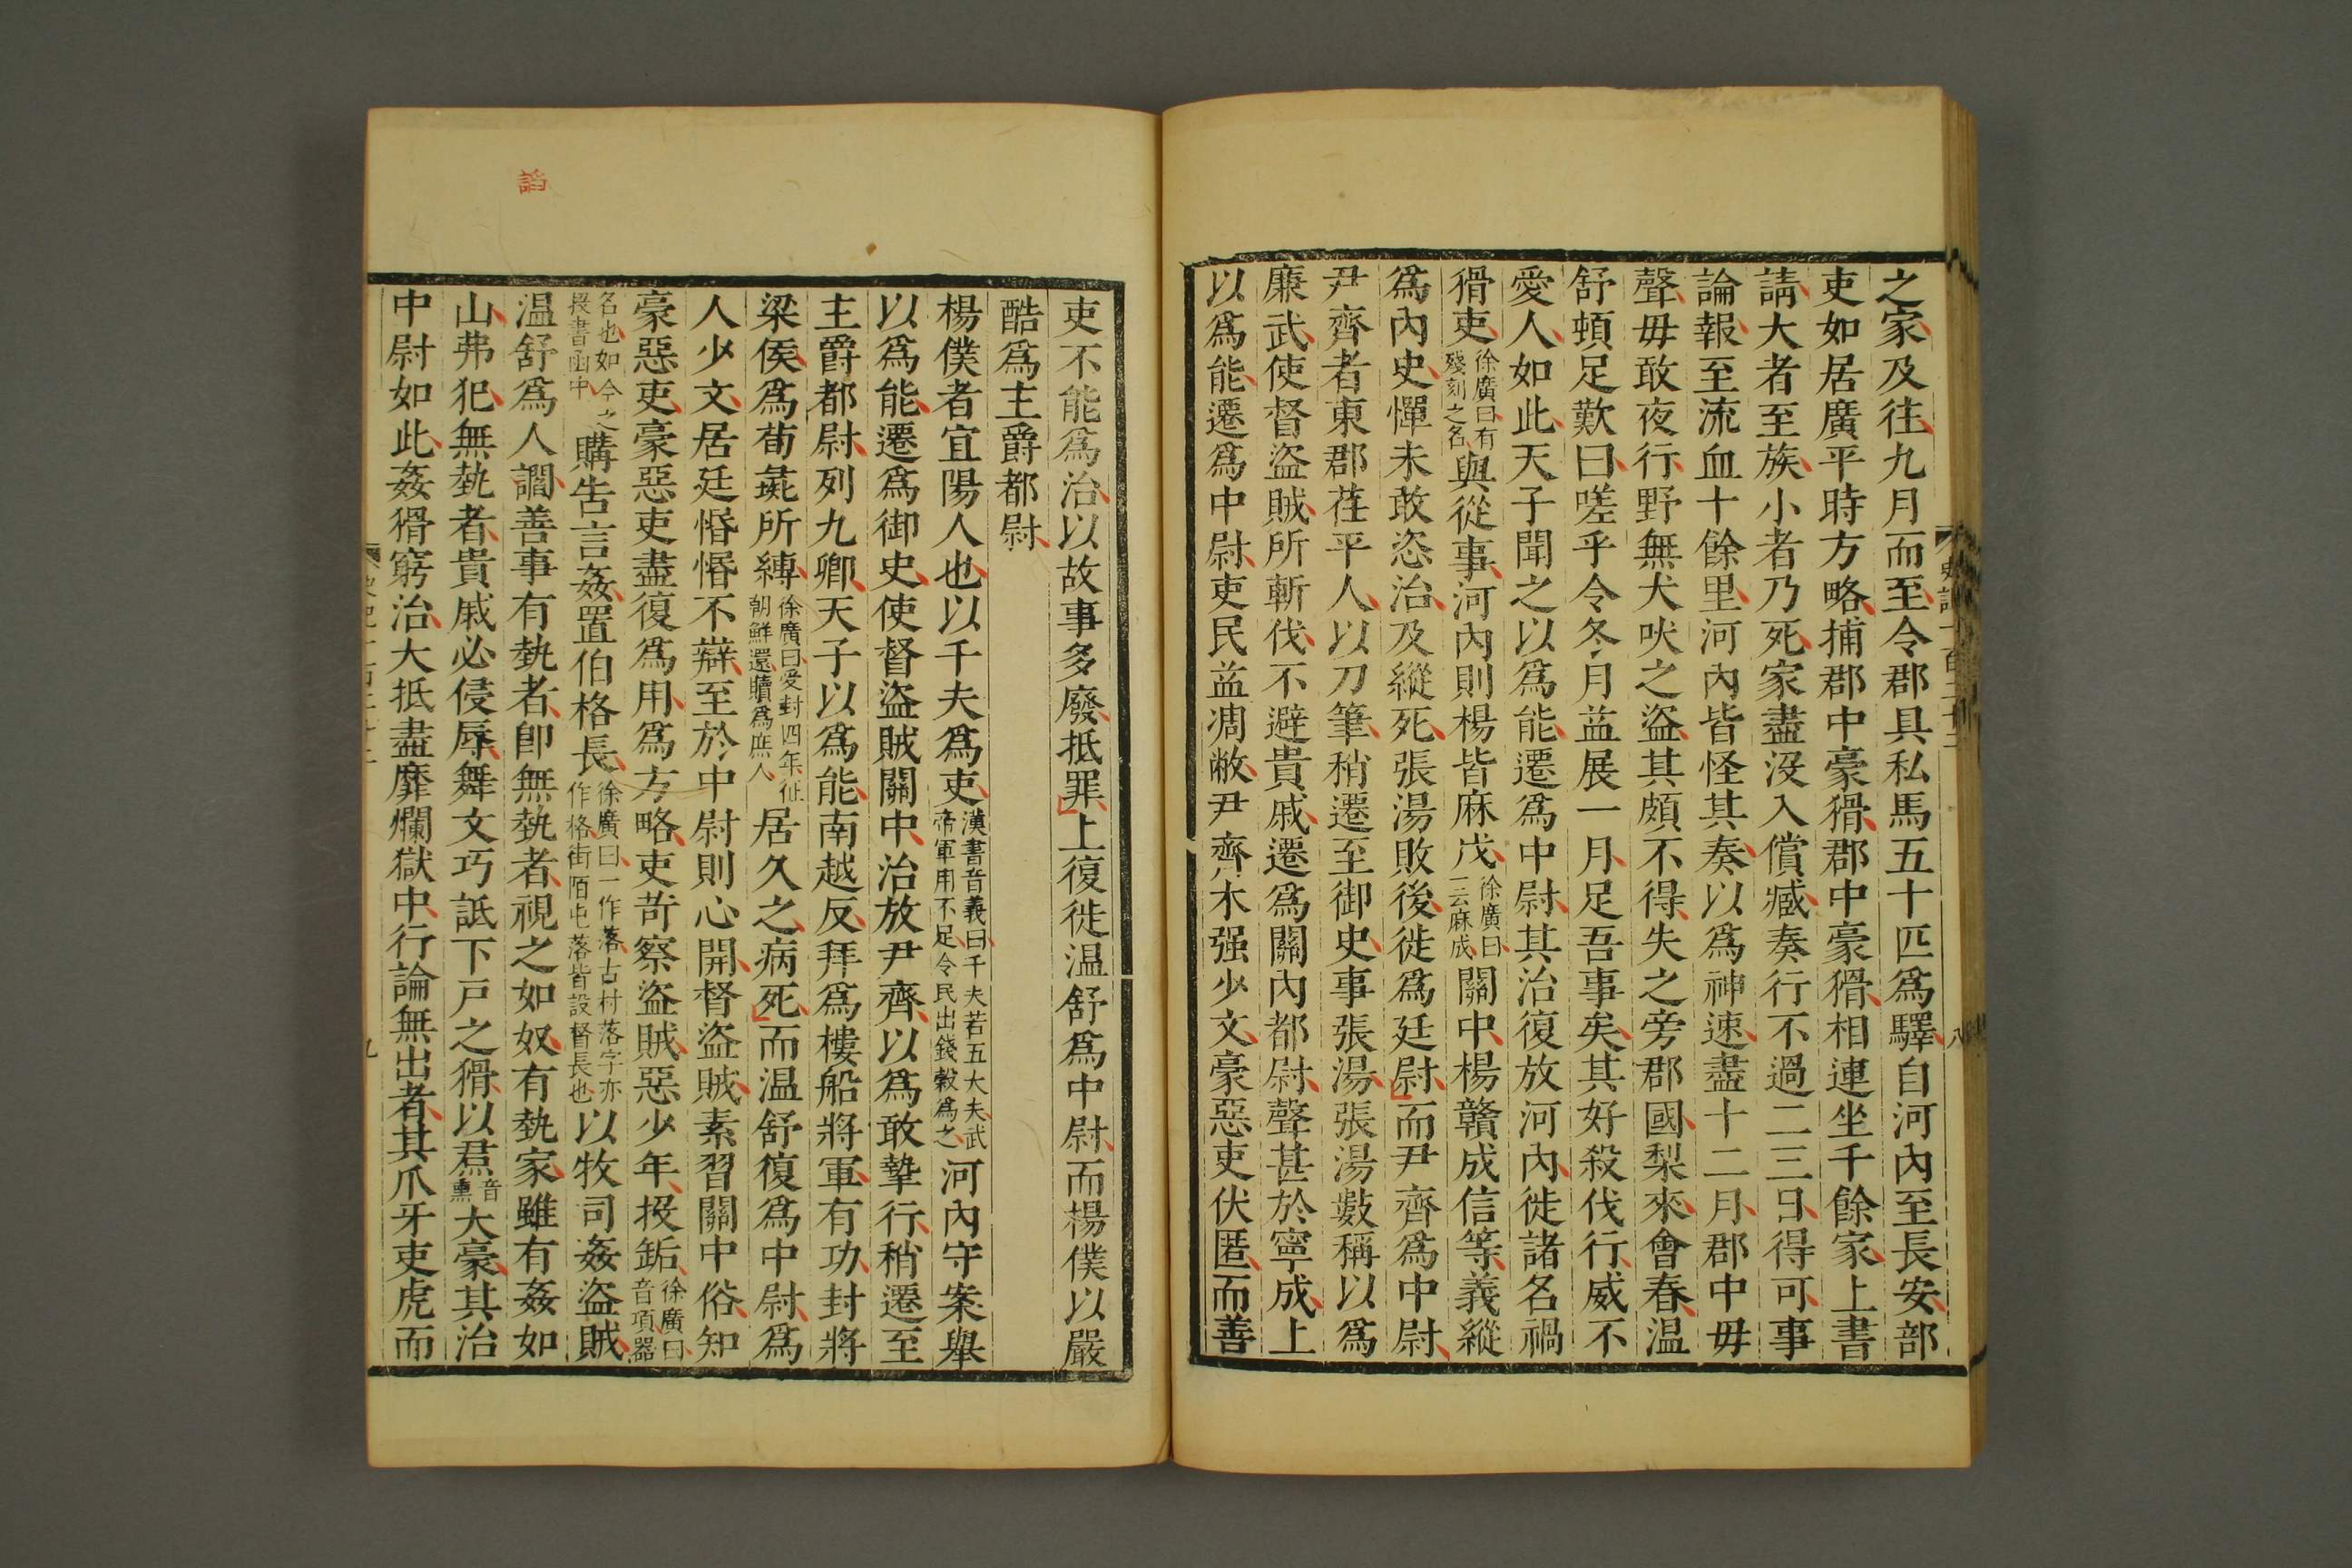 之家及往九月而至令郡具私馬五十匹爲驛自河內至長安部
吏如居廣平時方略捕郡中豪猾郡中豪猾相連坐千餘家上書
請大者至族小者乃死家盡沒入償臧奏行不過二三日得可事
論報至流血十餘里河內皆怪其奏以爲神速盡十二月郡中毋
聲毋敢夜行野無犬吠之盜其頗不得失之旁郡國梨來會春温
舒頓足歎曰嗟乎令冬月益展一月足吾事矣其好殺伐行威不
愛人如此天子聞之以爲能遷爲中尉其治復放河內徙諸名禍
猾吏徐廣曰有殘刻之名與從事河內則楊皆麻戊徐廣曰一云麻成關中楊贛成信等義縱
爲內史憚未敢恣治及縱死張湯敗後徙爲廷尉而尹齊爲中尉
尹齊者東郡茌平人以刀筆稍遷至御史事張湯張湯數稱以爲
廉武使督盜賊所斬伐不避貴戚遷爲關內都尉聲甚於寧成上
以爲能遷爲中尉吏民益凋敝尹齊木强少文豪惡吏伏匿而善
吏不能爲治以故事多廢抵罪上復徙温舒爲中尉而楊僕以嚴
酷爲主爵都尉
楊僕者宜陽人也以千夫爲吏漢書音義曰千夫若五大夫武帝軍用不足令民出錢穀爲之河內守案舉
以爲能遷爲御史使督盜賊關中治放尹齊以爲敢摯行稍遷至
主爵都尉列九卿天子以爲能南越反拜爲樓船將軍有功封將
梁侯爲荀彘所縛徐廣曰受封四年征朝鮮還贖爲庶人居久之病死而温舒復爲中尉爲
人少文居廷惛惛不辯至於中尉則心開督盜賊素習關中俗知
豪惡吏豪惡吏盡復爲用爲方略吏苛察盜賊惡少年投缿徐廣曰音項器
名也如今之投書函中購告言姦置伯格長徐廣曰一作落古村落字亦作格街陌屯落皆設督長也以牧司姦盜賊
温舒爲人讇善事有埶者卽無埶者視之如奴有埶家雖有姦如
山弗犯無埶者貴戚必侵辱舞文巧詆下戸之猾以焄音熏大豪其治
中尉如此姦猾窮治大抵盡靡爛獄中行論無出者其爪牙吏虎而